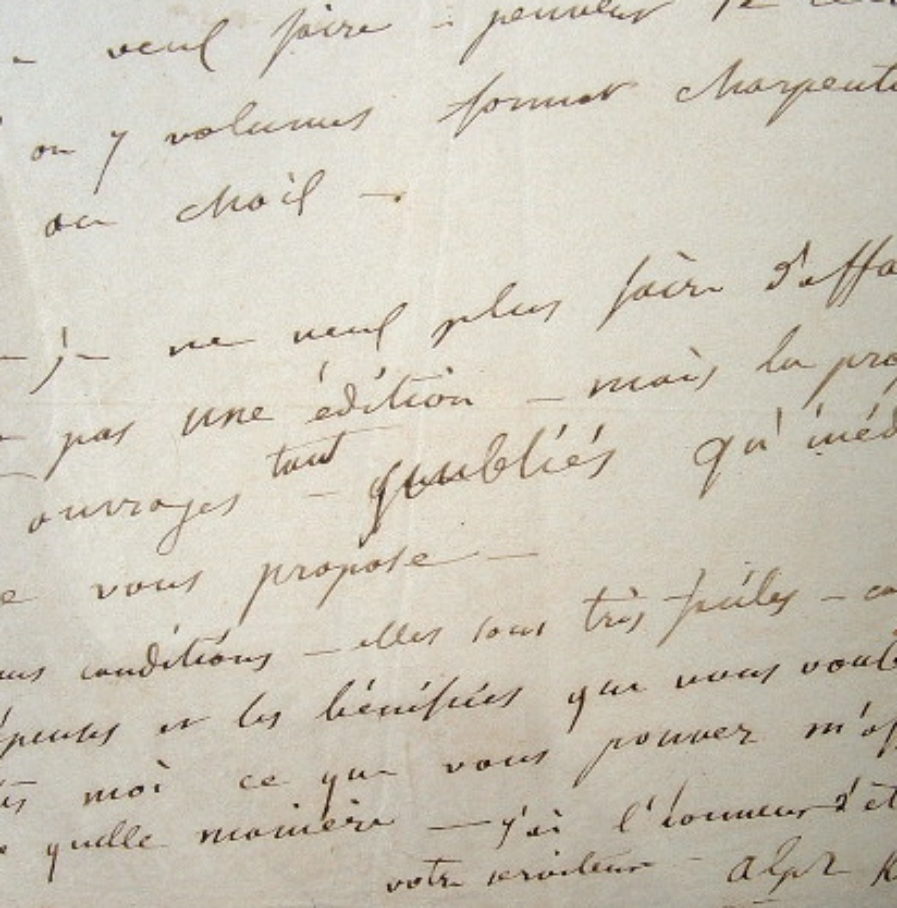 veut faire - peuvent 12
ou 7 volumes format Charpent
ou choix -
- j- ne veut plus faire d'affa
pas une édition - mais la pro
ouvrages tant - publiés qu'inéd
e vous propose -
conditions - elles sont très faciles -
et les bénéfices que vous voul
moi ce que vous pouvez m'of
quelle manière - j'ai l'honneur d'êt
votre serviteur - Alph K